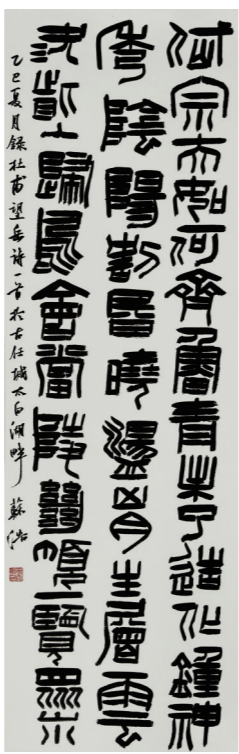 岱宗夫如何齊魯青未了造化鍾神
秀陰陽割昏曉盪胸生層雲
決眥入歸鳥會當陵絕頂一覽眾山小
乙巳夏月錄杜甫望岳詩一首於古任城太白湖畔 蘇